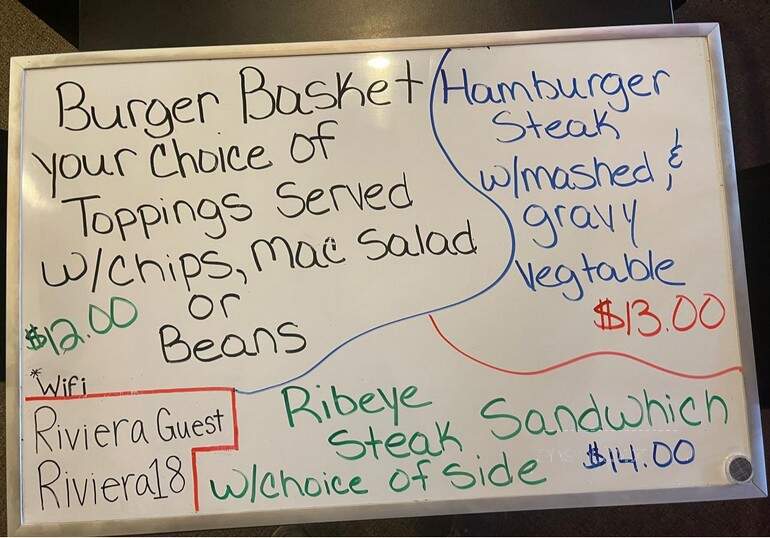 Burger Basket
your Choice of
Toppings Served
w/chips, Mac Salad
or
Beans
$12.00
Hamburger
Steak
w/mashed, &
gravy
vegtable
$13.00
*Wifi
Riviera Guest
Riviera18
Ribeye
Steak Sandwhich
w/choice of side $14.00